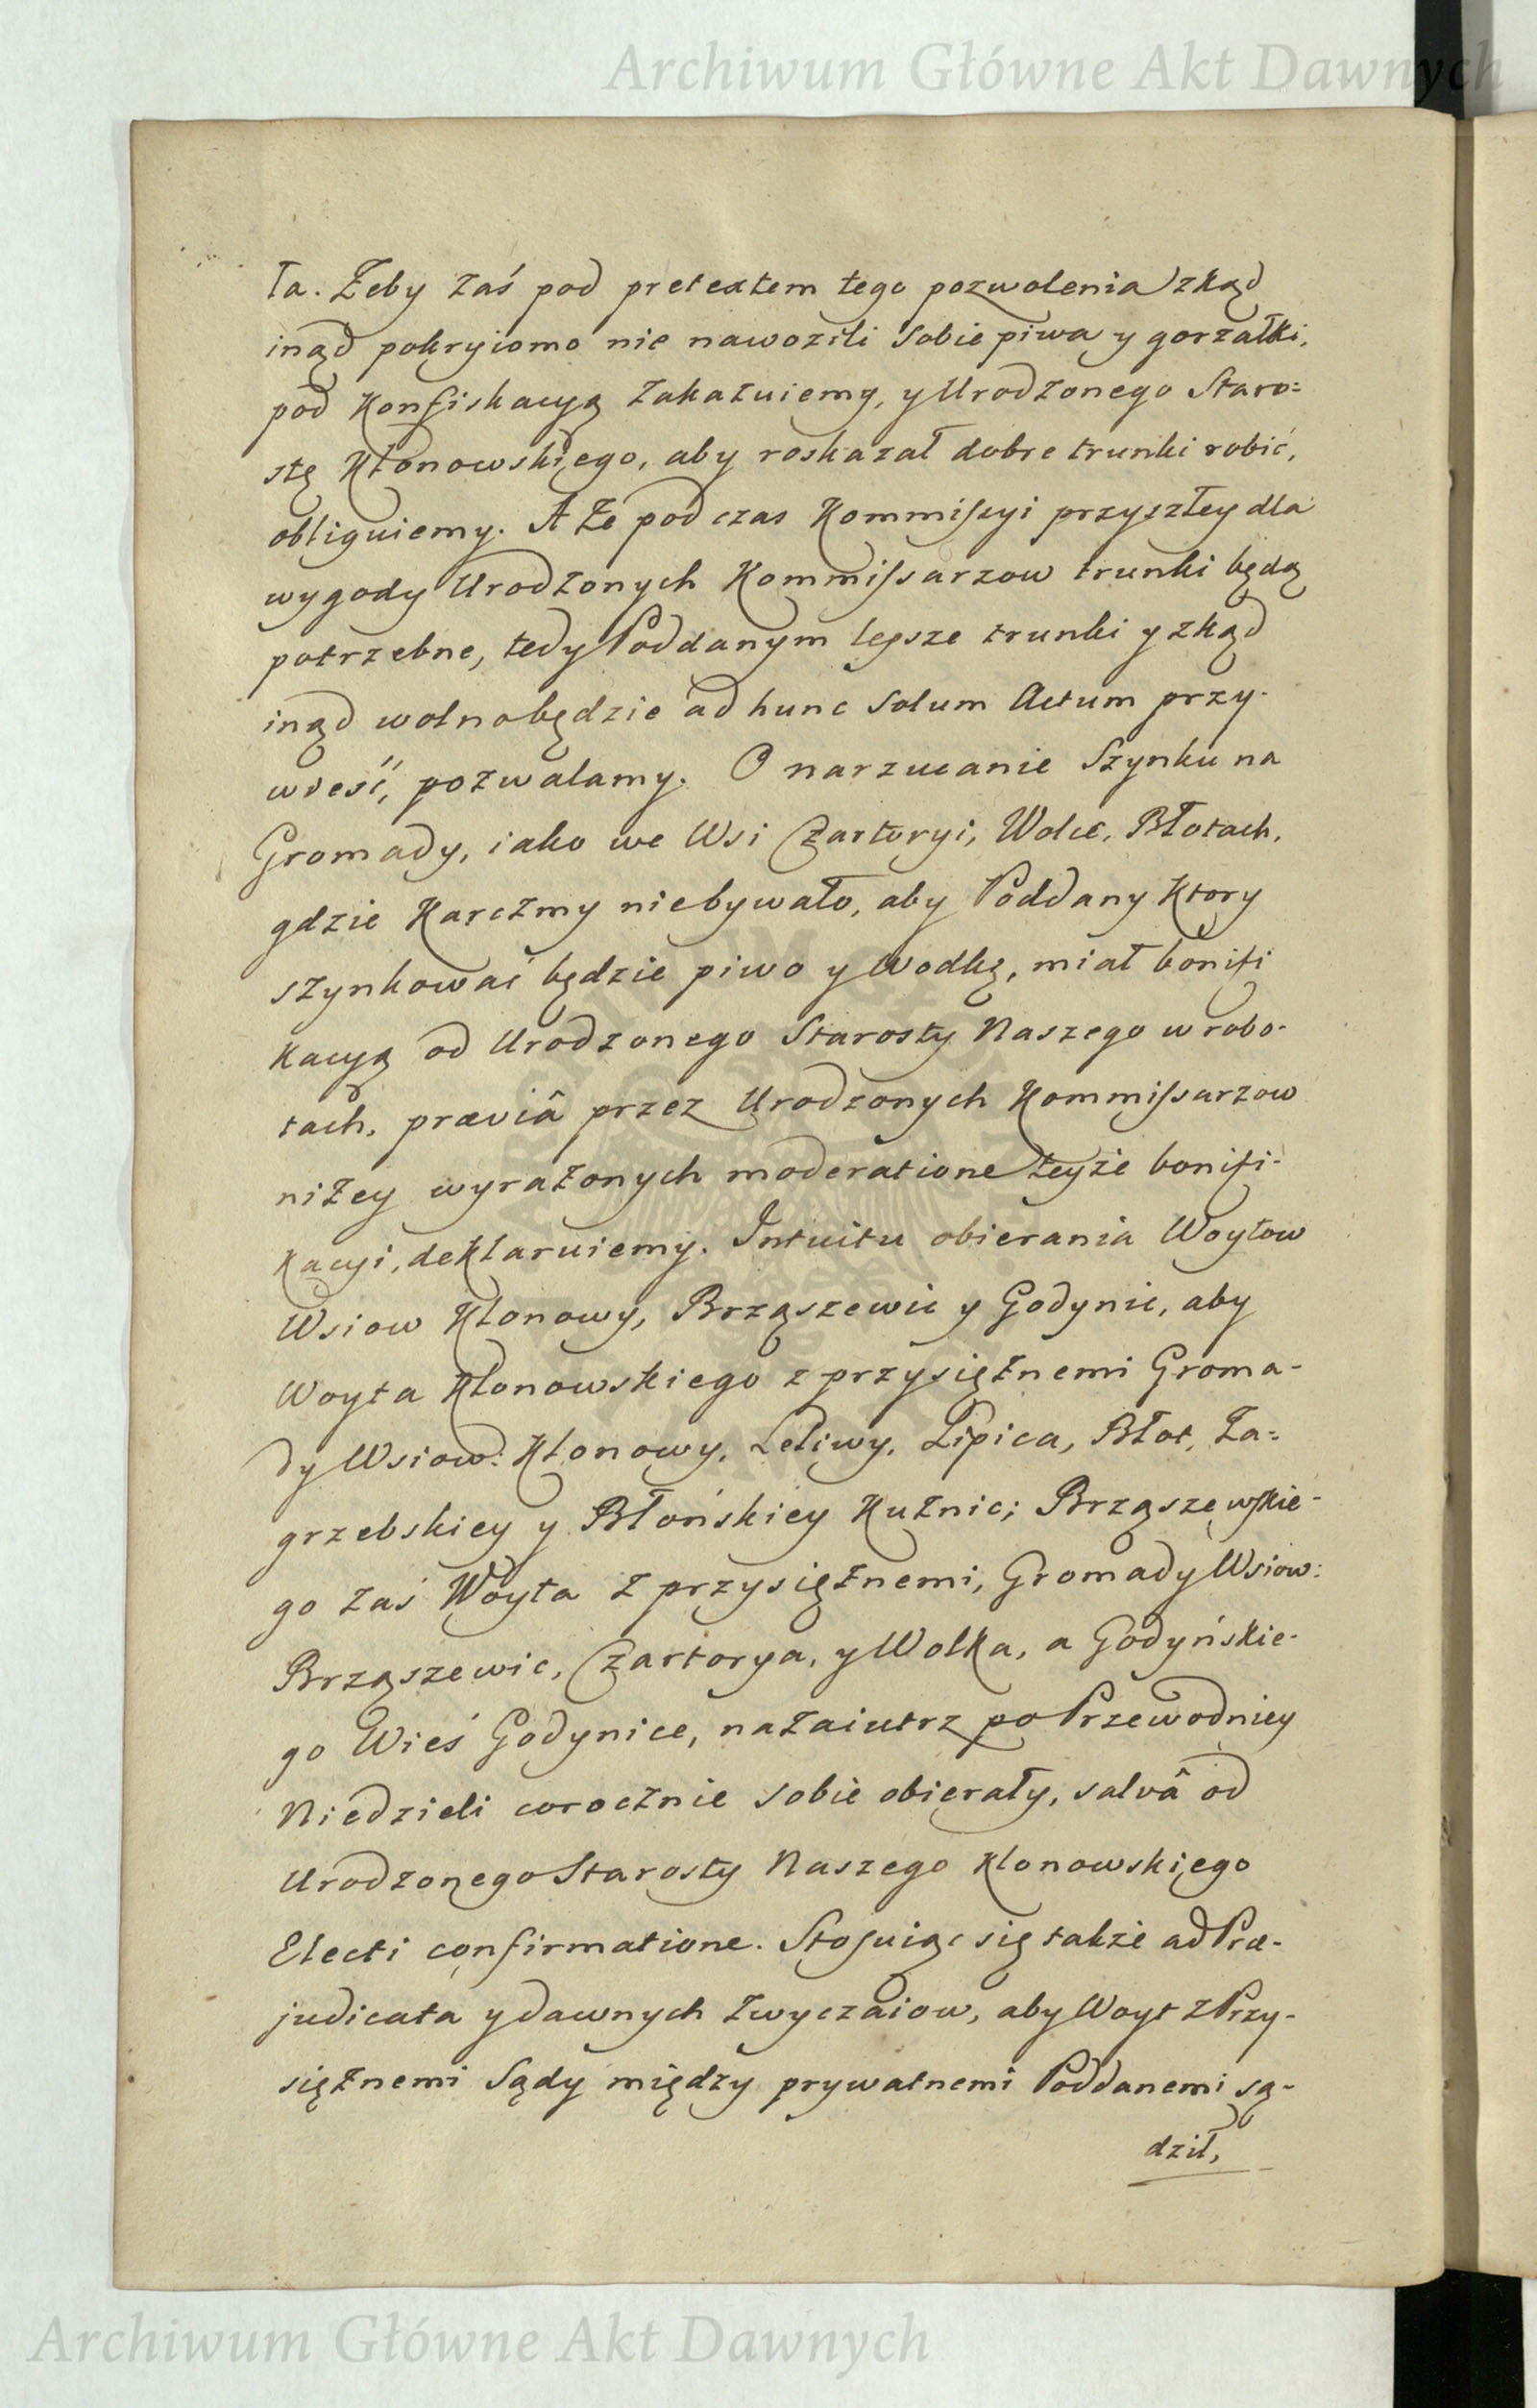 Archiwum Główne Akt Dawnych
ła. Żeby zaś pod pretextem tego pozwolenia zkąd
inąd pokryiomo nie nawozili sobie piwa y gorzałki,
pod Konfiskacyą zakazuiemy, y Urodzonego Staro=
stę Kłonowskiego, aby roskazał dobre trunki robić,
obliguiemy. A że pod czas Kommiſsyi przyszłey dla
wygody Urodzonych Kommiſsarzow trunki będą
potrzebne, tedy Poddanym lepsze trunki y zkąd
inąd wolno będzie ad hunc solum Actum przy-
wieść, pozwalamy. O narzucanie Szynku na
Gromady, iako we Wsi Czartoryi, Wolce, Błotach,
gdzie Karczmy niebywało, aby Poddany Ktory
szynkować będzie piwo y Wodkę, miał bonifi
kacyą od Urodzonego Starosty Naszego w robo-
tach, præviâ przez Urodzonych Kommiſsarzow
niżey wyrażonych moderatione teyże bonifi-
kacyi, deklaruiemy. Intuitu obierania Woytow
Wsiow Klonowy, Brząszewic y Godynic, aby
Woyta Klonowskiego z przysiężnemi Groma-
dy Wsiow: Klonowy, Leliwy, Lipica, Błot, Za=
grzebskiey y Błońskiey Kuźnic; Brząszewskie-
go zaś Woyta z przysiężnemi, Gromady Wsiow:
Brząszewic, Czartorya, y Wolka, a Godyńskie-
go Wieś Godynice, nazaiutrz po Przewodniey
Niedzieli corocznie sobie obierały, salvâ od
Urodzonego Starosty Naszego Klonowskiego
Electi confirmatione. Stoſuiąc się także ad Præ-
judicata y dawnych zwyczaiow, aby Woyt z Przy-
siężnemi Sądy między prywatnemi Poddanemi są-
dził,
Archiwum Główne Akt Dawnych